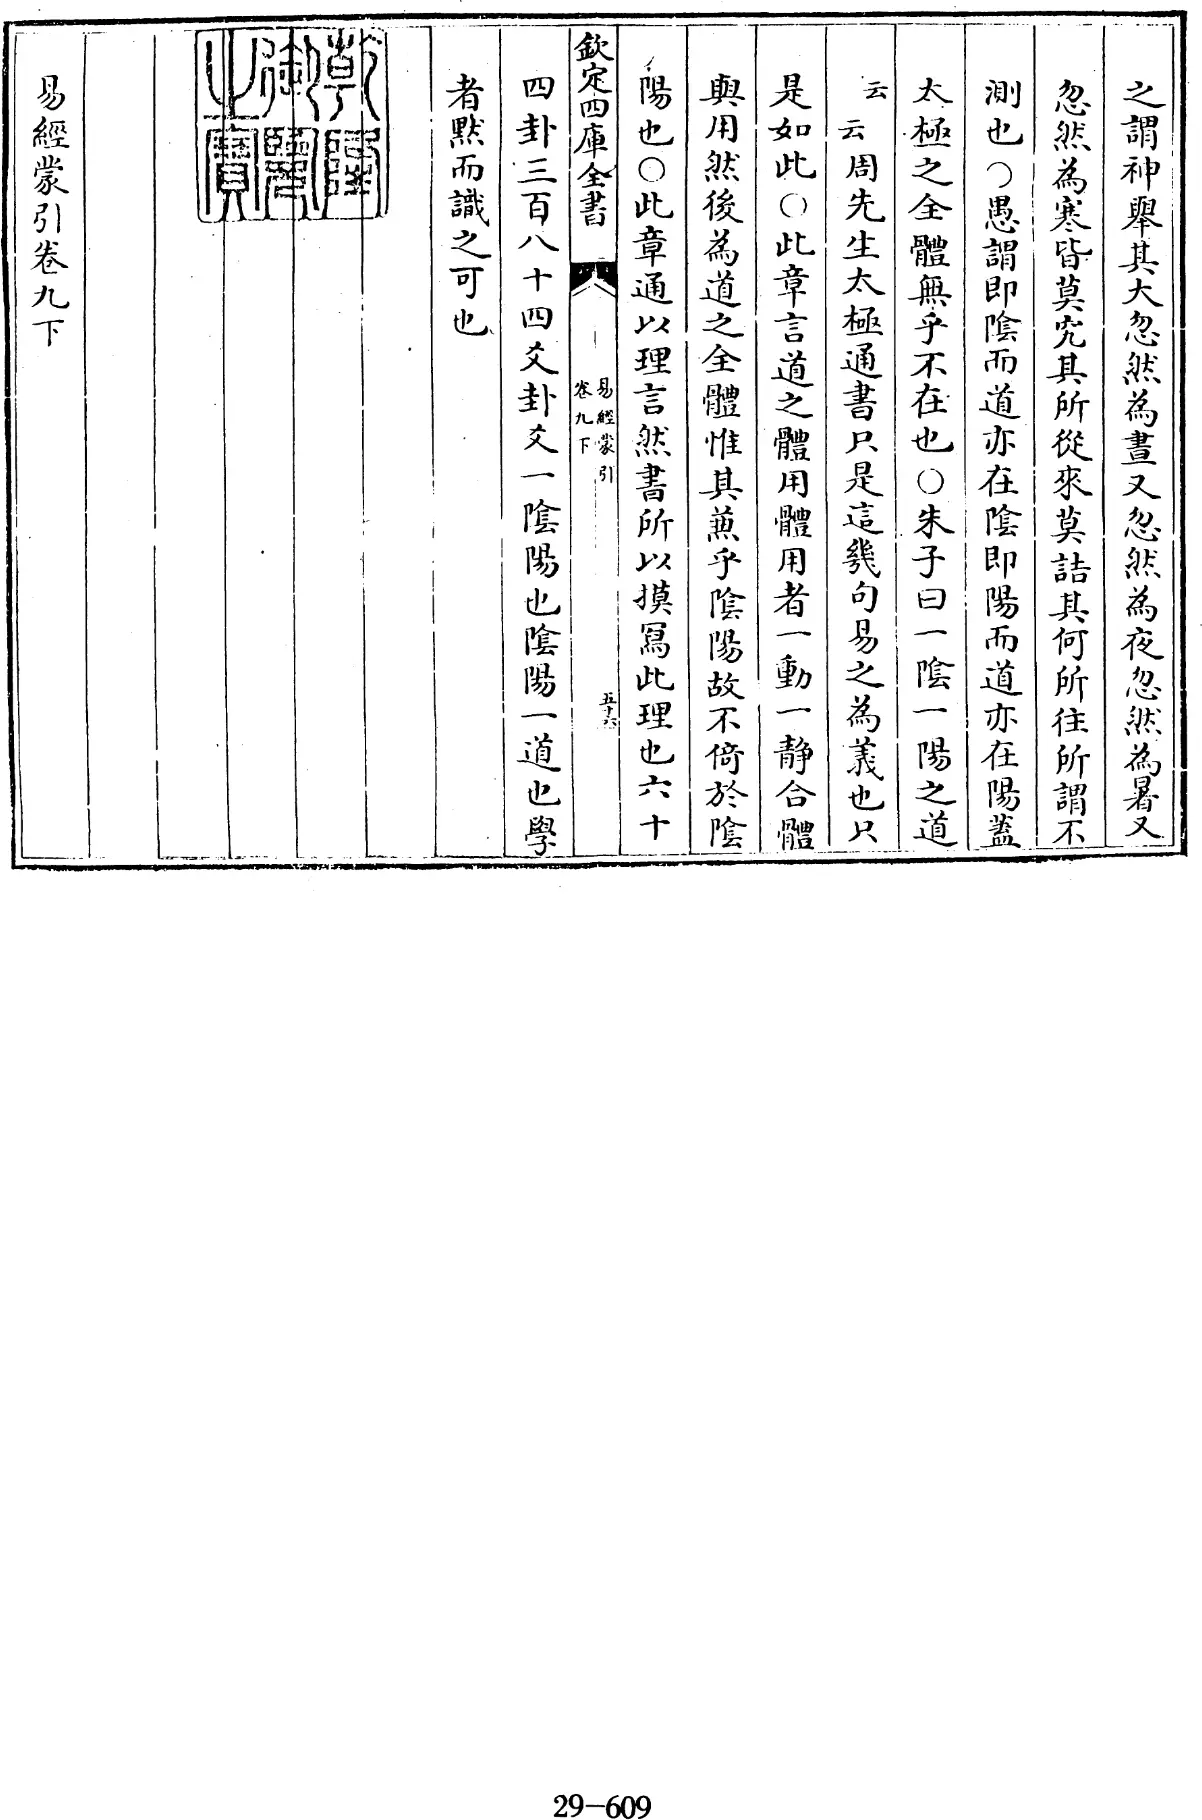 之謂神舉其大忽然為晝又忽然為夜忽然為暑又
忽然為寒皆莫究其所從來莫詰其何所往所謂不
測也〇愚謂即陰而道亦在陰即陽而道亦在陽蓋
太極之全體無乎不在也〇朱子曰一陰一陽之道
云云周先生太極通書只是這幾句易之為義也只
是如此〇此章言道之體用體用者一動一靜合體
與用然後為道之全體惟其兼乎陰陽故不倚於陰
陽也〇此章通以理言然書所以摸寫此理也六十
欽定四庫全書
易經蒙引
卷九下
五十六
四卦三百八十四爻卦爻一陰陽也陰陽一道也學
者黙而識之可也
乾隆
御覽
之寶
易經蒙引卷九下
29-609